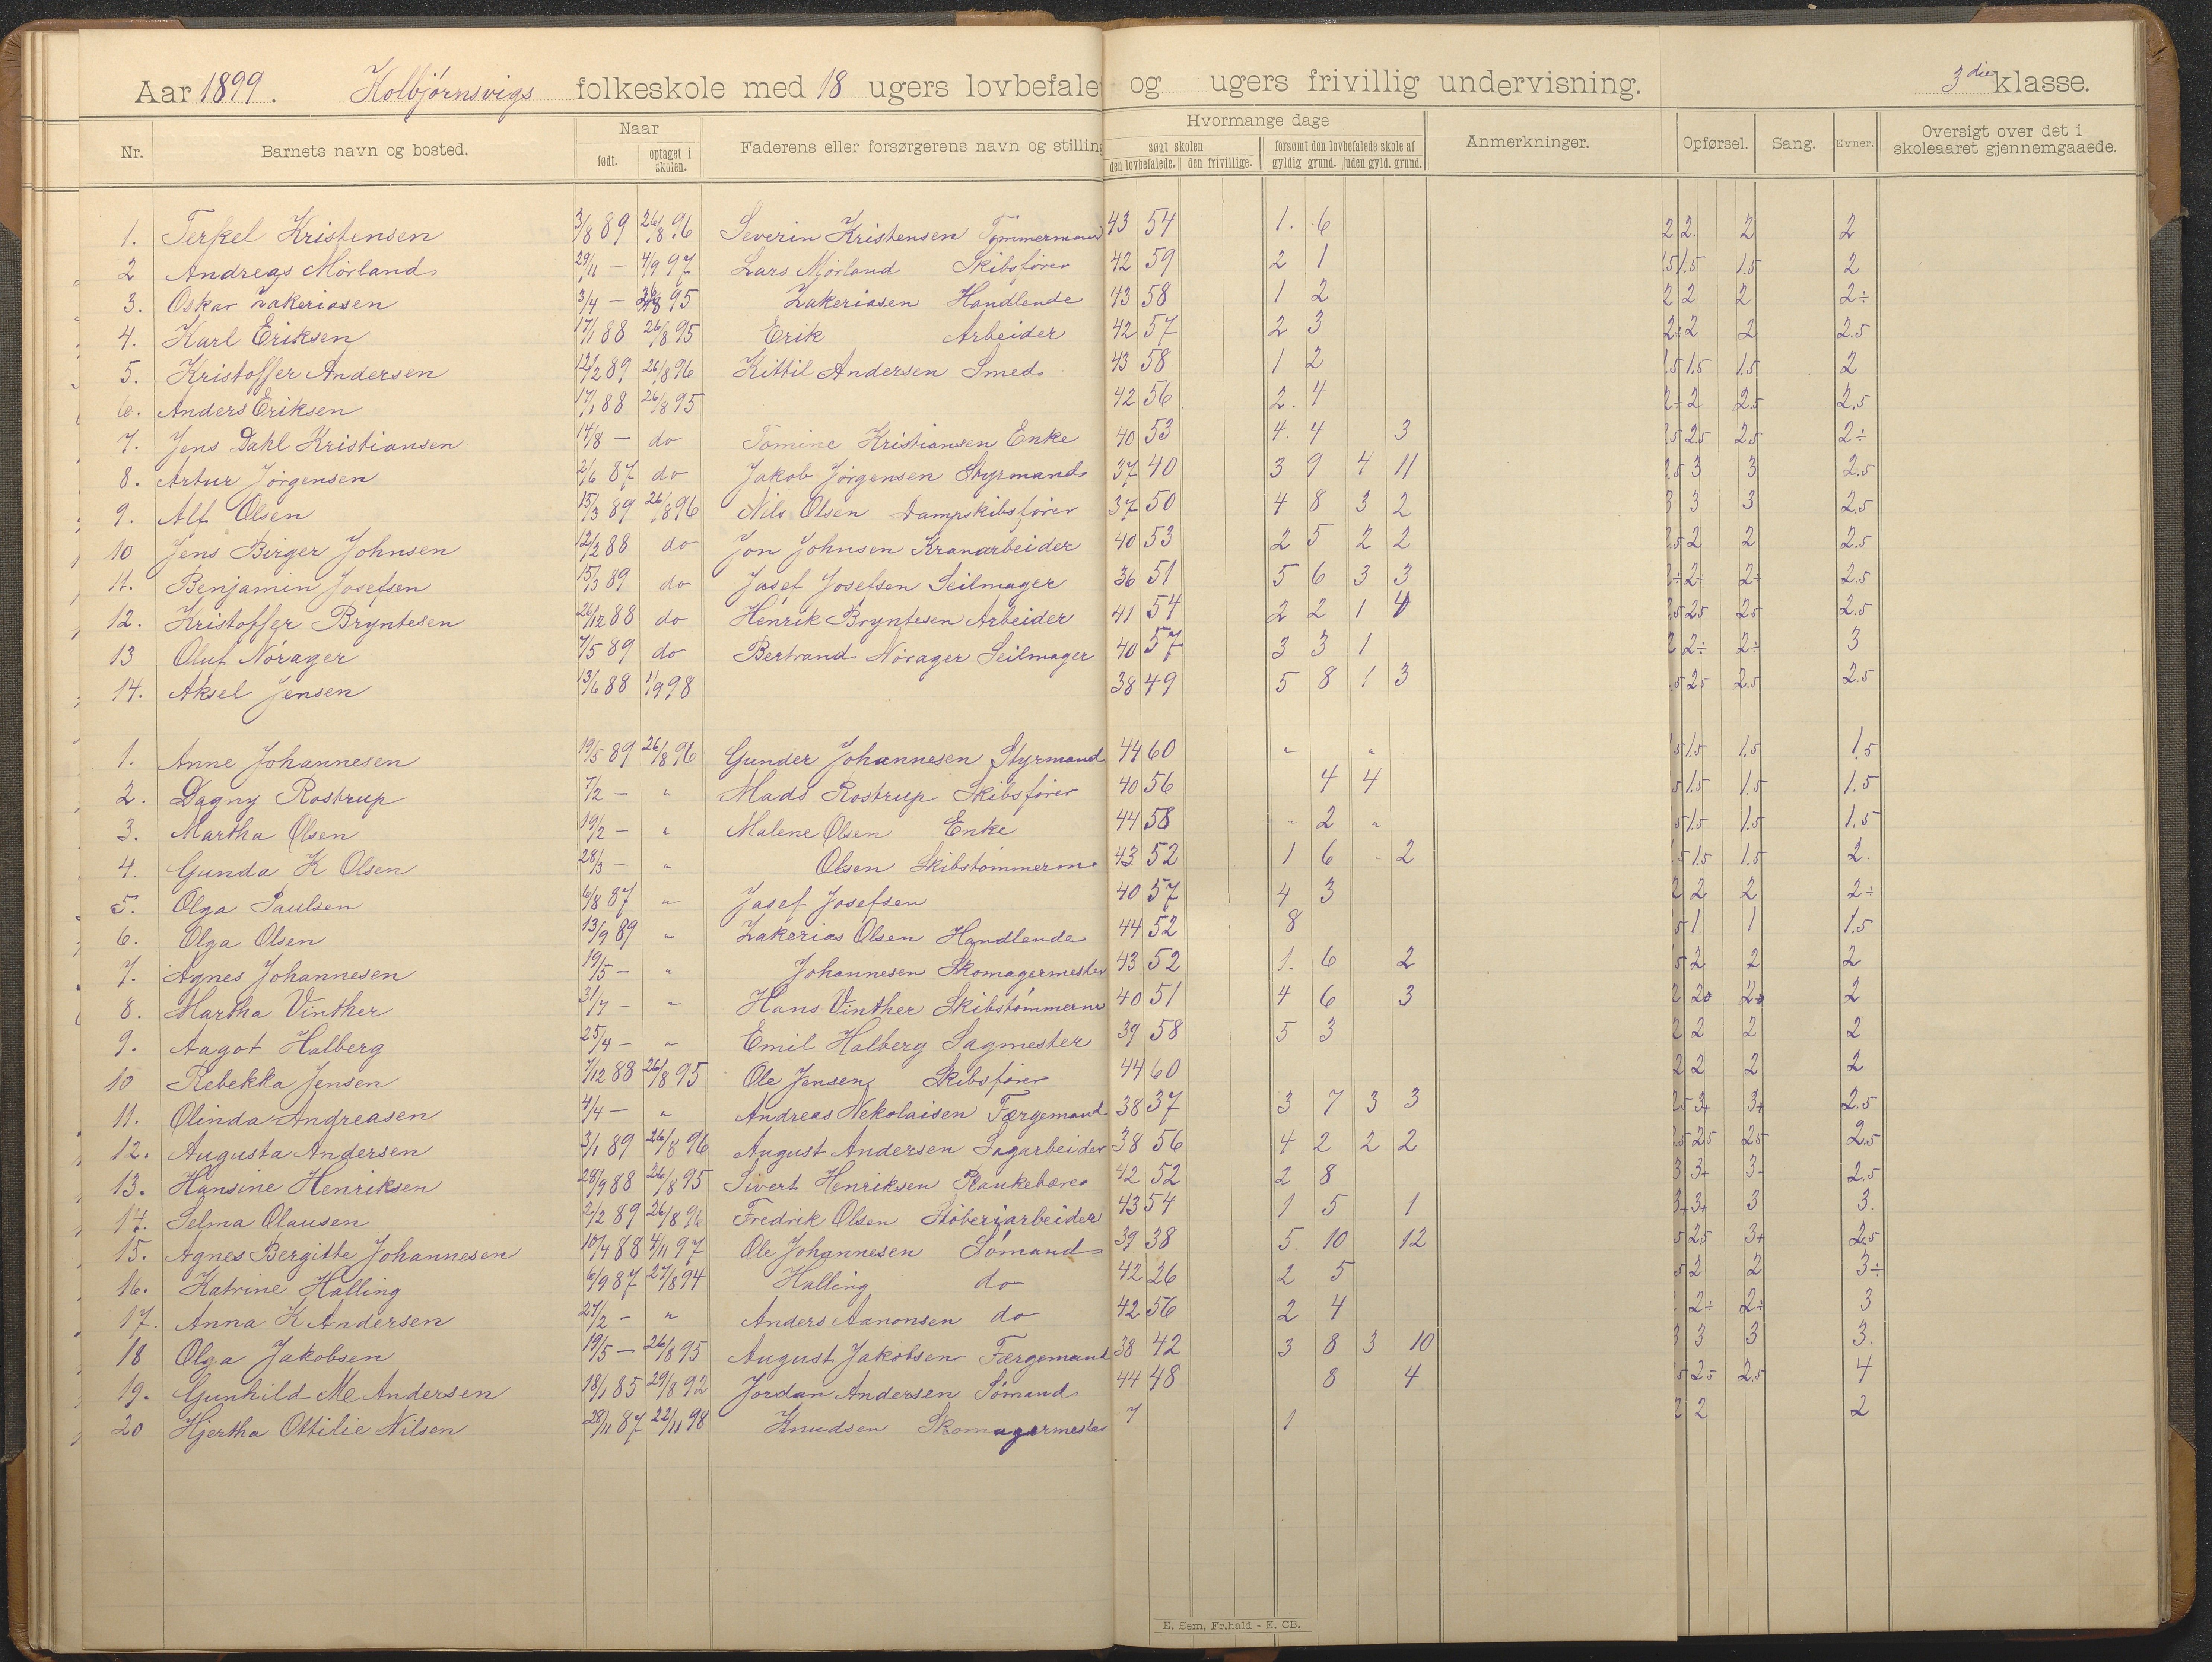 Aar 1899. Kolbjørnsvigs folkeskole med 18 ugers lovbefale og ugers frivillig undervisning. 3die klasse.
Nr. Barnets navn og bosted. Naar født. optaget i skolen. Faderens eller forsørgerens navn og stilling Hvormange dage søgt skolen den lovbefalede. den frivillige. forsømt den lovbefalede skole af gyldig grund. uden gyld. grund. Anmerkninger. Opførsel. Sang. Evner. Oversigt over det i skoleaaret gjennemgaaede.
1. Terkel Kristensen 3/8 89 26/8 96 Severin Kristensen Tømmermand 43 54 1. 6 2 2. 2 2
2 Andreas Mörland 29/11 — 4/9 97 Lars Mörland Skibsfører 42 59 2 1 1.5 1.5 2
3. Oskar Zakeriasen 3/4 — 95 Zakeriasen Handlende 43 58 1 2 2 2 2 2÷
4. Karl Eriksen 17/1 88 26/8 95 Erik Arbeider 42 57 2 3 2 2 2.5
5. Kristoffer Andersen 12/2 89 26/8 96 Kittil Andersen Smed 43 58 1 2 1.5 1.5 2
6. Anders Eriksen 17/1 88 26/8 95 42 56 2. 4 2÷ 2 2.5 2.5
7. Jens Dahl Kristiansen 14/8 — do Tomine Kristiansen Enke 40 53 4. 4 3 2.5 2.5 2÷
8. Artur Jörgensen 2/6 87 do Jakob Jörgensen Styrmand 37 40 3 9 4 11 3 3 2.5
9. Alf Olsen 15/3 89 26/8 96 Nils Olsen Dampskibsfører 37 50 4 8 3 2 3 3 3 2.5
10 Jens Birger Johnsen 12/2 88 do Jon Johnsen Kranarbeider 40 53 2 5 2 2 2 2 2.5
11. Benjamin Josefsen 15/3 89 do Josef Josefsen Seilmager 36 51 5 6 3 3 2÷ 2÷ 2÷ 2.5
12. Kristoffer Bryntesen 26/12 88 do Henrik Bryntesen Arbeider 41 54 2 2 1 4 2.5 2.5 2.5
13 Oluf Nörager 7/5 89 do Bertrand Nörager Seilmager 40 57 3 3 1 2 2÷ 2÷ 3
14. Aksel Jensen 13/6 88 1/9 98 38 49 5 8 1 3 2.5 2.5 2.5
1. Anne Johannesen 19/5 89 26/8 96 Gunder Johannesen Styrmand 44 60 " " 1.5 1.5 1.5
2. Dagny Rostrup 7/2 — " Mads Rostrup Skibsfører 40 56 4 4 1.5 1.5 1.5
3. Martha Olsen 19/2 — " Malene Olsen Enke 44 58 " 2 " 1.5 1.5 1.5
4. Gunda K Olsen 28/3 — " Olsen Skibstømmerm. 43 52 1 6 - 2 1.5 1.5 2.
5. Olga Paulsen 6/8 87 " Josef Josefsen 40 57 4 3 2 2 2 2÷
6. Olga Olsen 13/9 89 " Zakerias Olsen Handlende 44 52 8 1. 1 1.5
7. Agnes Johannesen 19/5 — " Johannesen Skomagermester 43 52 1. 6 2 2 2 2
8. Martha Vinther 31/7 — " Hans Vinther Skibstømmerm 40 51 4 6 3 2 2 2 2
9. Aagot Halberg 25/4 — " Emil Halberg Sagmester 39 58 5 3 2 2 2 2
10 Rebekka Jensen 7/12 88 26/8 95 Ole Jensen Skibsfører 44 60 2 2 2 2
11. Olinda Andreasen 4/4 — " Andreas Nekolaisen Færgemand 38 37 3 7 3 3 2.5 3+ 3+ 2.5
12. Augusta Andersen 3/1 89 26/8 96 August Andersen Sagarbeider 38 56 4 2 2 2 2.5 2.5 2.5
13. Hansine Henriksen 28/9 88 26/8 95 Sivert Henriksen Plankebærer 42 52 2 8 3 3+ 3- 2.5
14. Selma Olausen 2/2 89 26/8 96 Fredrik Olsen Støberiarbeider 43 54 1 5 1 3+ 3+ 3 3.
15. Agnes Bergitte Johannesen 10/4 88 4/11 97 Ole Johannesen Sömand 39 38 5. 10 12 2.5 3+ 2.5
16. Katrine Halling 6/9 87 27/8 94 Halling do 42 26 2 5 2 2 3÷
17. Anna K Andersen 27/2 — " Anders Aanonsen do 42 56 2 4 2÷ 2÷ 3
18 Olga Jakobsen 19/5 — 26/8 95 August Jakobsen Færgemand 38 42 3 8 3 10 3 3 3 3.
19. Gunhild M Andersen 18/1 85 29/8 92 Jordan Andersen Sömand 44 48 8 4 2.5 2.5 4
20 Hjertha Ottilie Nilsen 28/11 87 22/11 98 Knudsen Skomagermester 7 1 2 2 2
E. Sem, Fr.hald - E. CB.